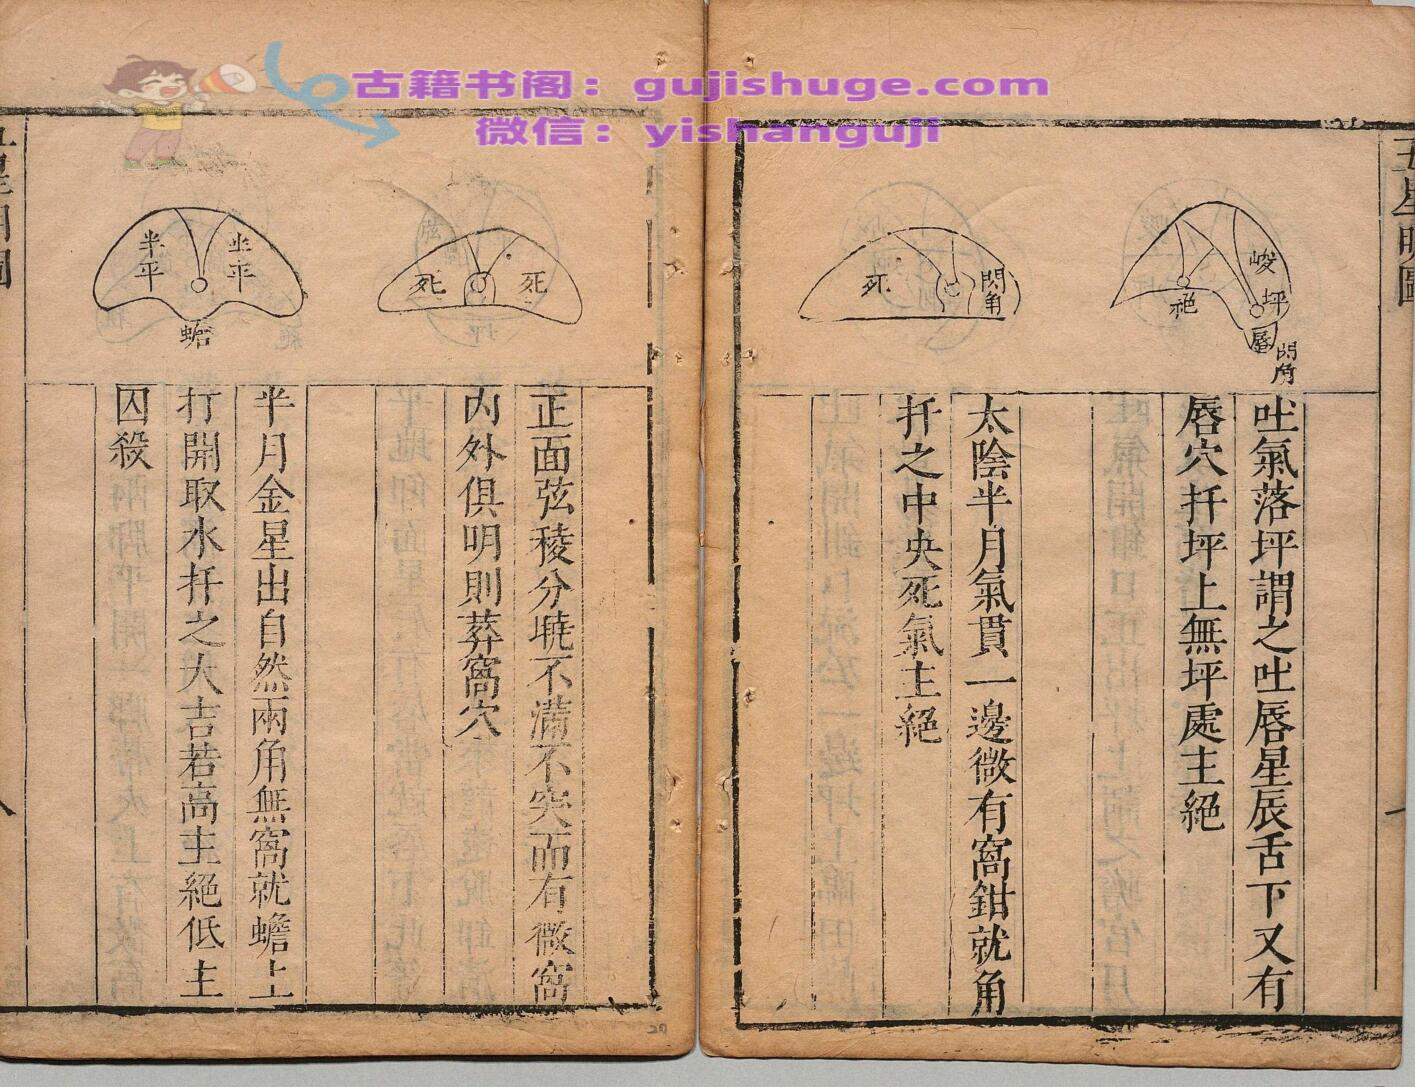 古籍书阁：gujishuge.com
微信：yishanguji
五星明圖
峻
坪
唇
閃角
絕
吐氣落坪謂之吐唇星辰舌下又有
唇穴扦坪上無坪處主絕
閃角
死
太陰半月氣貫一邊微有窩鉗就角
扦之中央死氣主絕
死
死
正面弦稜分曉不滿不突而有微窩
內外俱明則葬窩穴
半平
半平
蟾
半月金星出自然兩角無窩就蟾上
打開取水扦之大吉若高主絕低主
囚殺